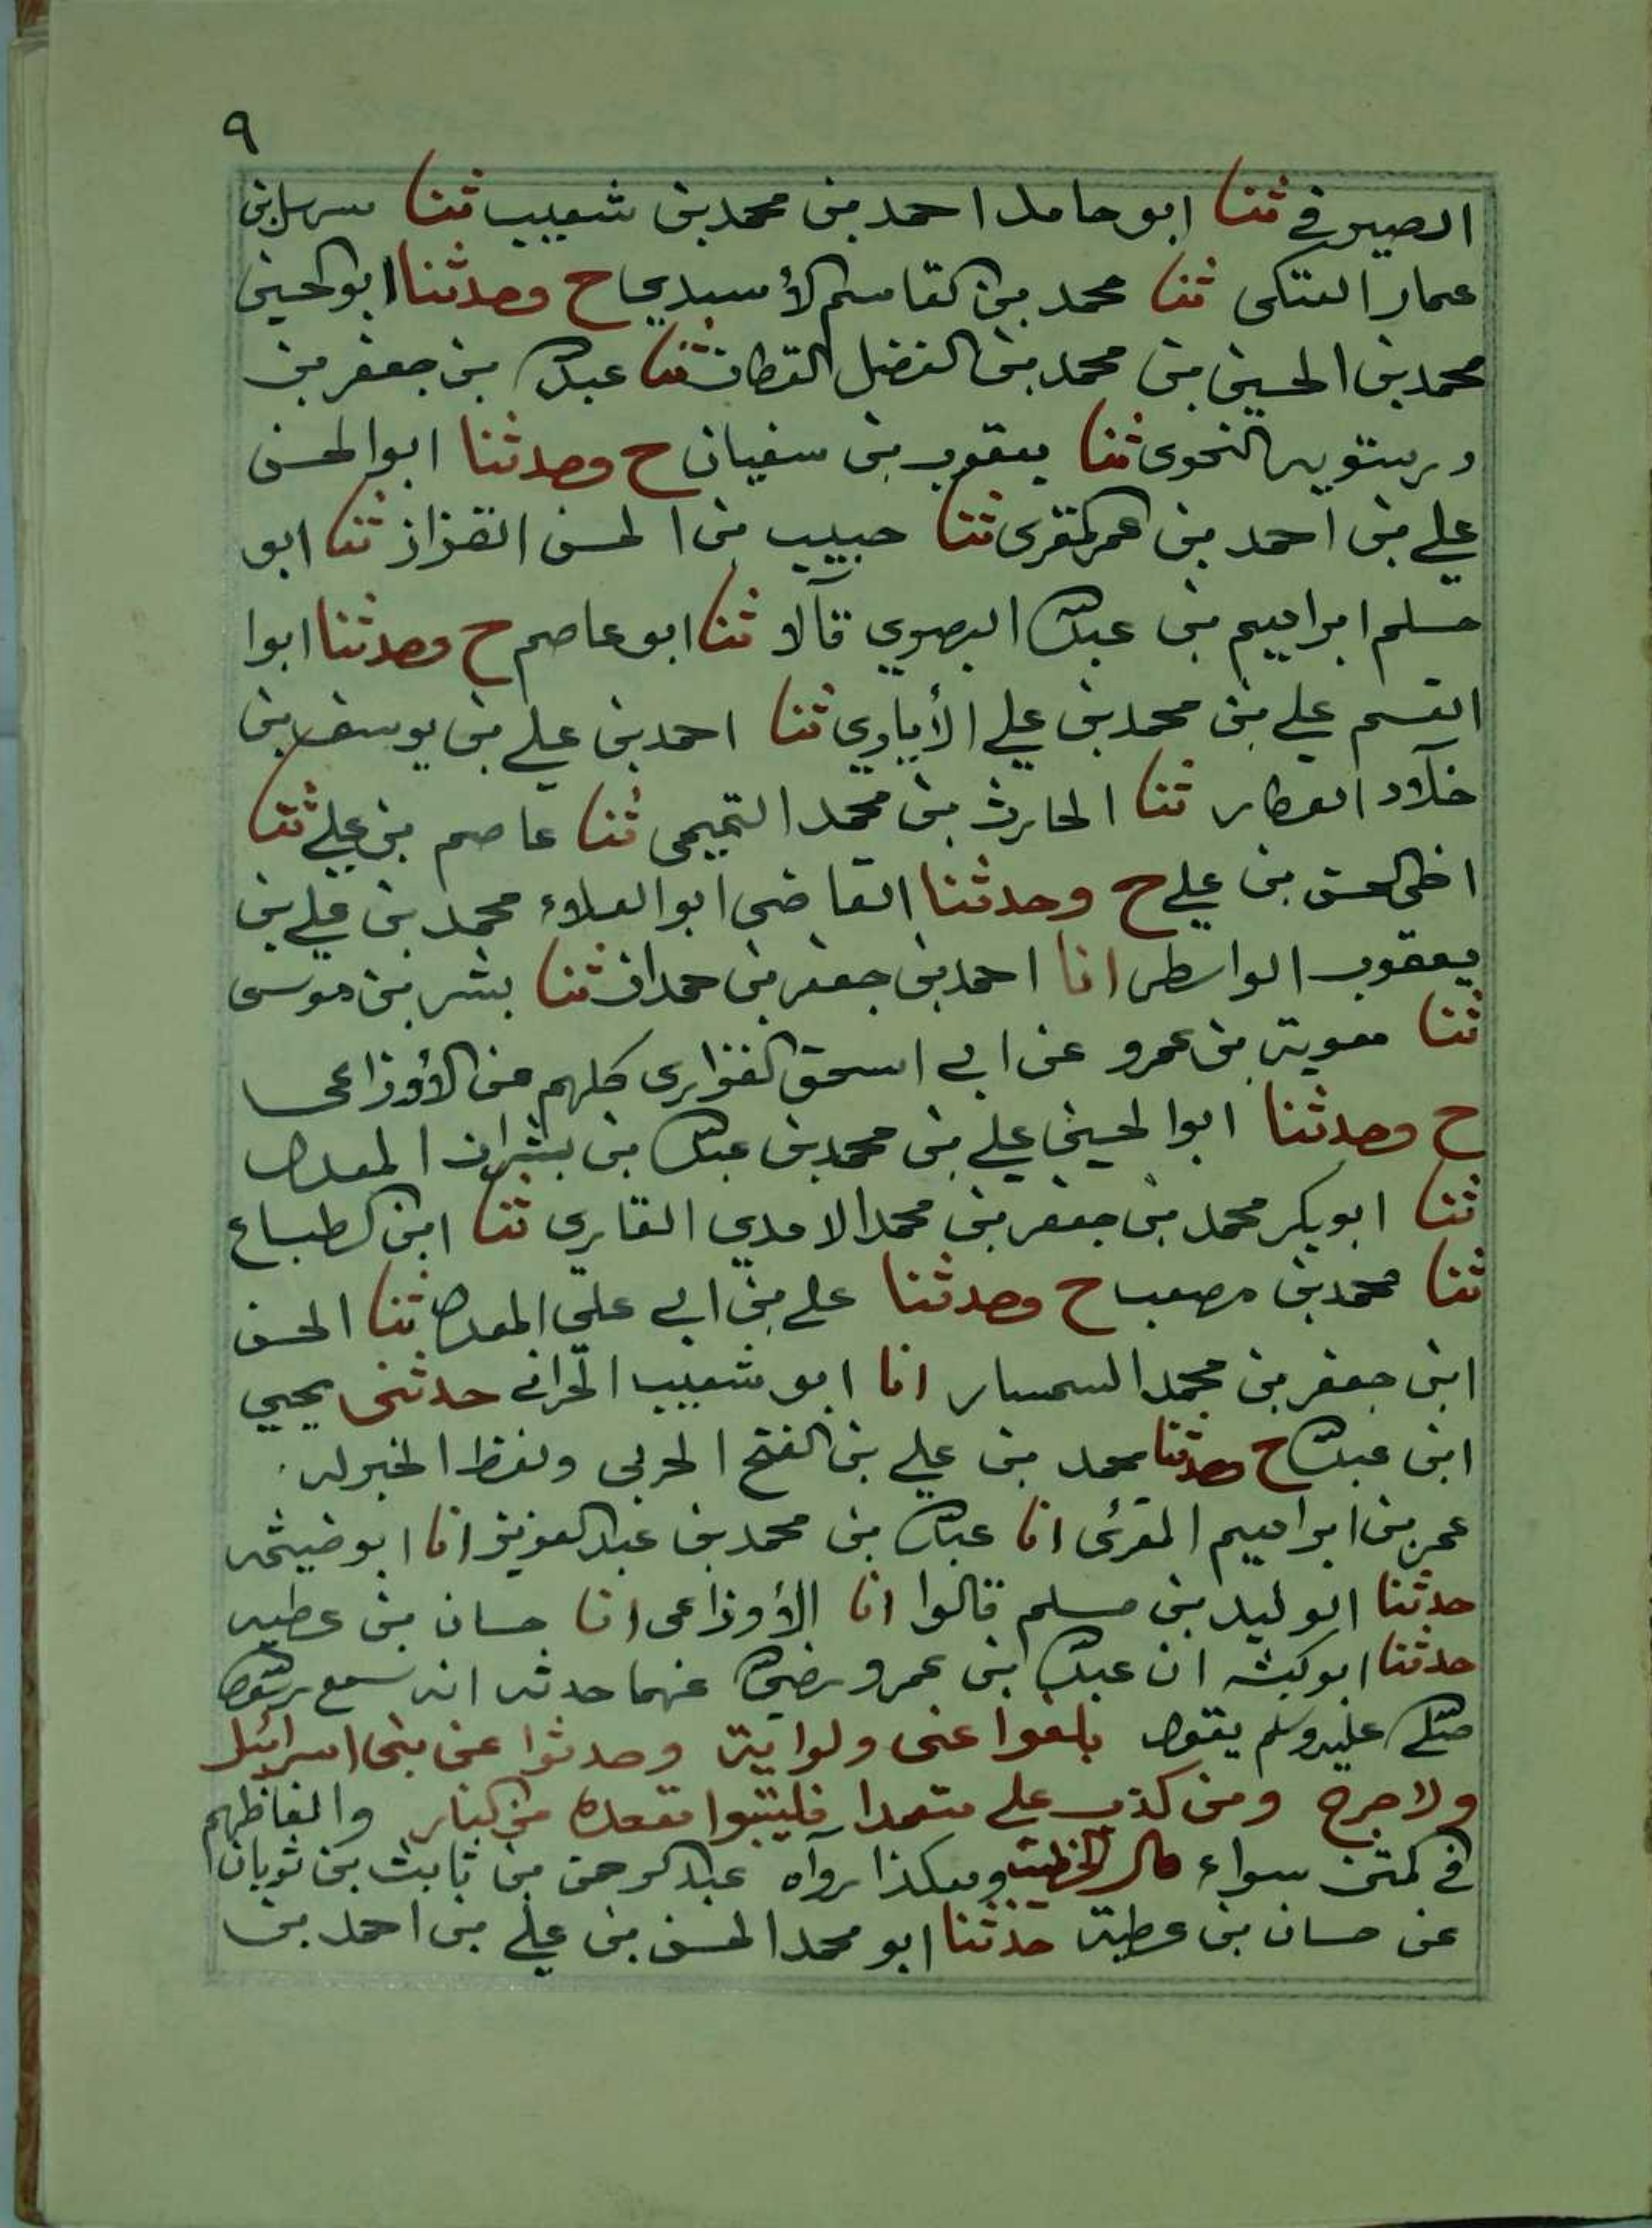 ٩
الصيرفي ثنا ابو حامد احمد بن محمد بن شعيب ثنا سهل بن
عمار العتكى ثنا محمد بن القاسم الأسدي ح وحدثنا ابو الحسين
محمد بن الحسين بن محمد بن الفضل القطان ثنا عبد الله بن جعفر بن
درستويه النحوى ثنا يعقوب بن سفيان ح وحدثنا ابوالحسن
علي بن احمد بن عمر المقرى ثنا حبيب بن الحسن القزاز ثنا ابو
مسلم ابراهيم بن عبد الله البصري قالا ثنا ابو عاصم ح وحدثنا ابوا
القسم علي بن محمد بن علي الأيادي ثنا احمد بن علي بن يوسف بن
خلاد العطار ثنا الحارث بن محمد التميمى ثنا عاصم بن علي ثنا
اخى الحسن بن علي ح وحدثنا القاضى ابو العلاء محمد بن علي بن
يعقوب الواسطى انا احمد بن جعفر بن حمدان ثنا بشر بن موسى
ثنا معوية بن عمرو عن ابي اسحق الفزارى كلهم عن الأوزاعى
ح وحدثنا ابوالحسين علي بن محمد بن عبد الله بن بشران المعدل
ثنا ابو بكر محمد بن جعفر بن محمد الادمي القاري ثنا ابن الطباع
ثنا محمد بن مصعب ح وحدثنا علي بن ابي علي المعدل ثنا الحسن
ابن جعفر بن محمد السمسار انا ابو شعيب الحراني حدثنى يحيي
ابن عبد الله ح وحدثنا محمد بن علي بن الفتح الحربى ولفظ الخبر له
عمر بن ابراهيم المقرئ انا عبد الله بن محمد بن عبد العزيز انا ابو خيثمه
حدثنا الوليد بن مسلم قالوا انا الأوزاعى انا حسان بن عطيه
حدثنا ابو كبشه ان عبد الله ابن عمرو رضي الله عنهما حدثه انه سمع رسول الله
صلى الله عليه وسلم يقول بلغوا عنى ولو اية وحدثوا عن بنى اسرائيل
ولا حرج ومن كذب على متعمدا فليتبوا مقعده من النار والفاظهم
في المتن سواء قال الخطيب وهكذا رواه عبد الرحمن بن ثابت بن ثوبان
عن حسان بن عطية حدثنا ابو محمد الحسن بن علي بن احمد بن